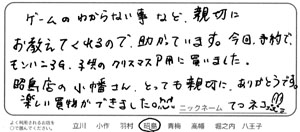 ゲームのわからない事など、親切に
お教えてくれるので、助かっています。今回、予約で、
モンハン3G、子供のクリスマスP用に買いました。
昭島店の小幡さん、とっても親切に、ありがとうです。
楽しい買物ができました。
ニックネーム てっネコ
よく利用されるお店を
○で囲んでください。
立川 小作 羽村 昭島 青梅 高幡 堀之内 八王子